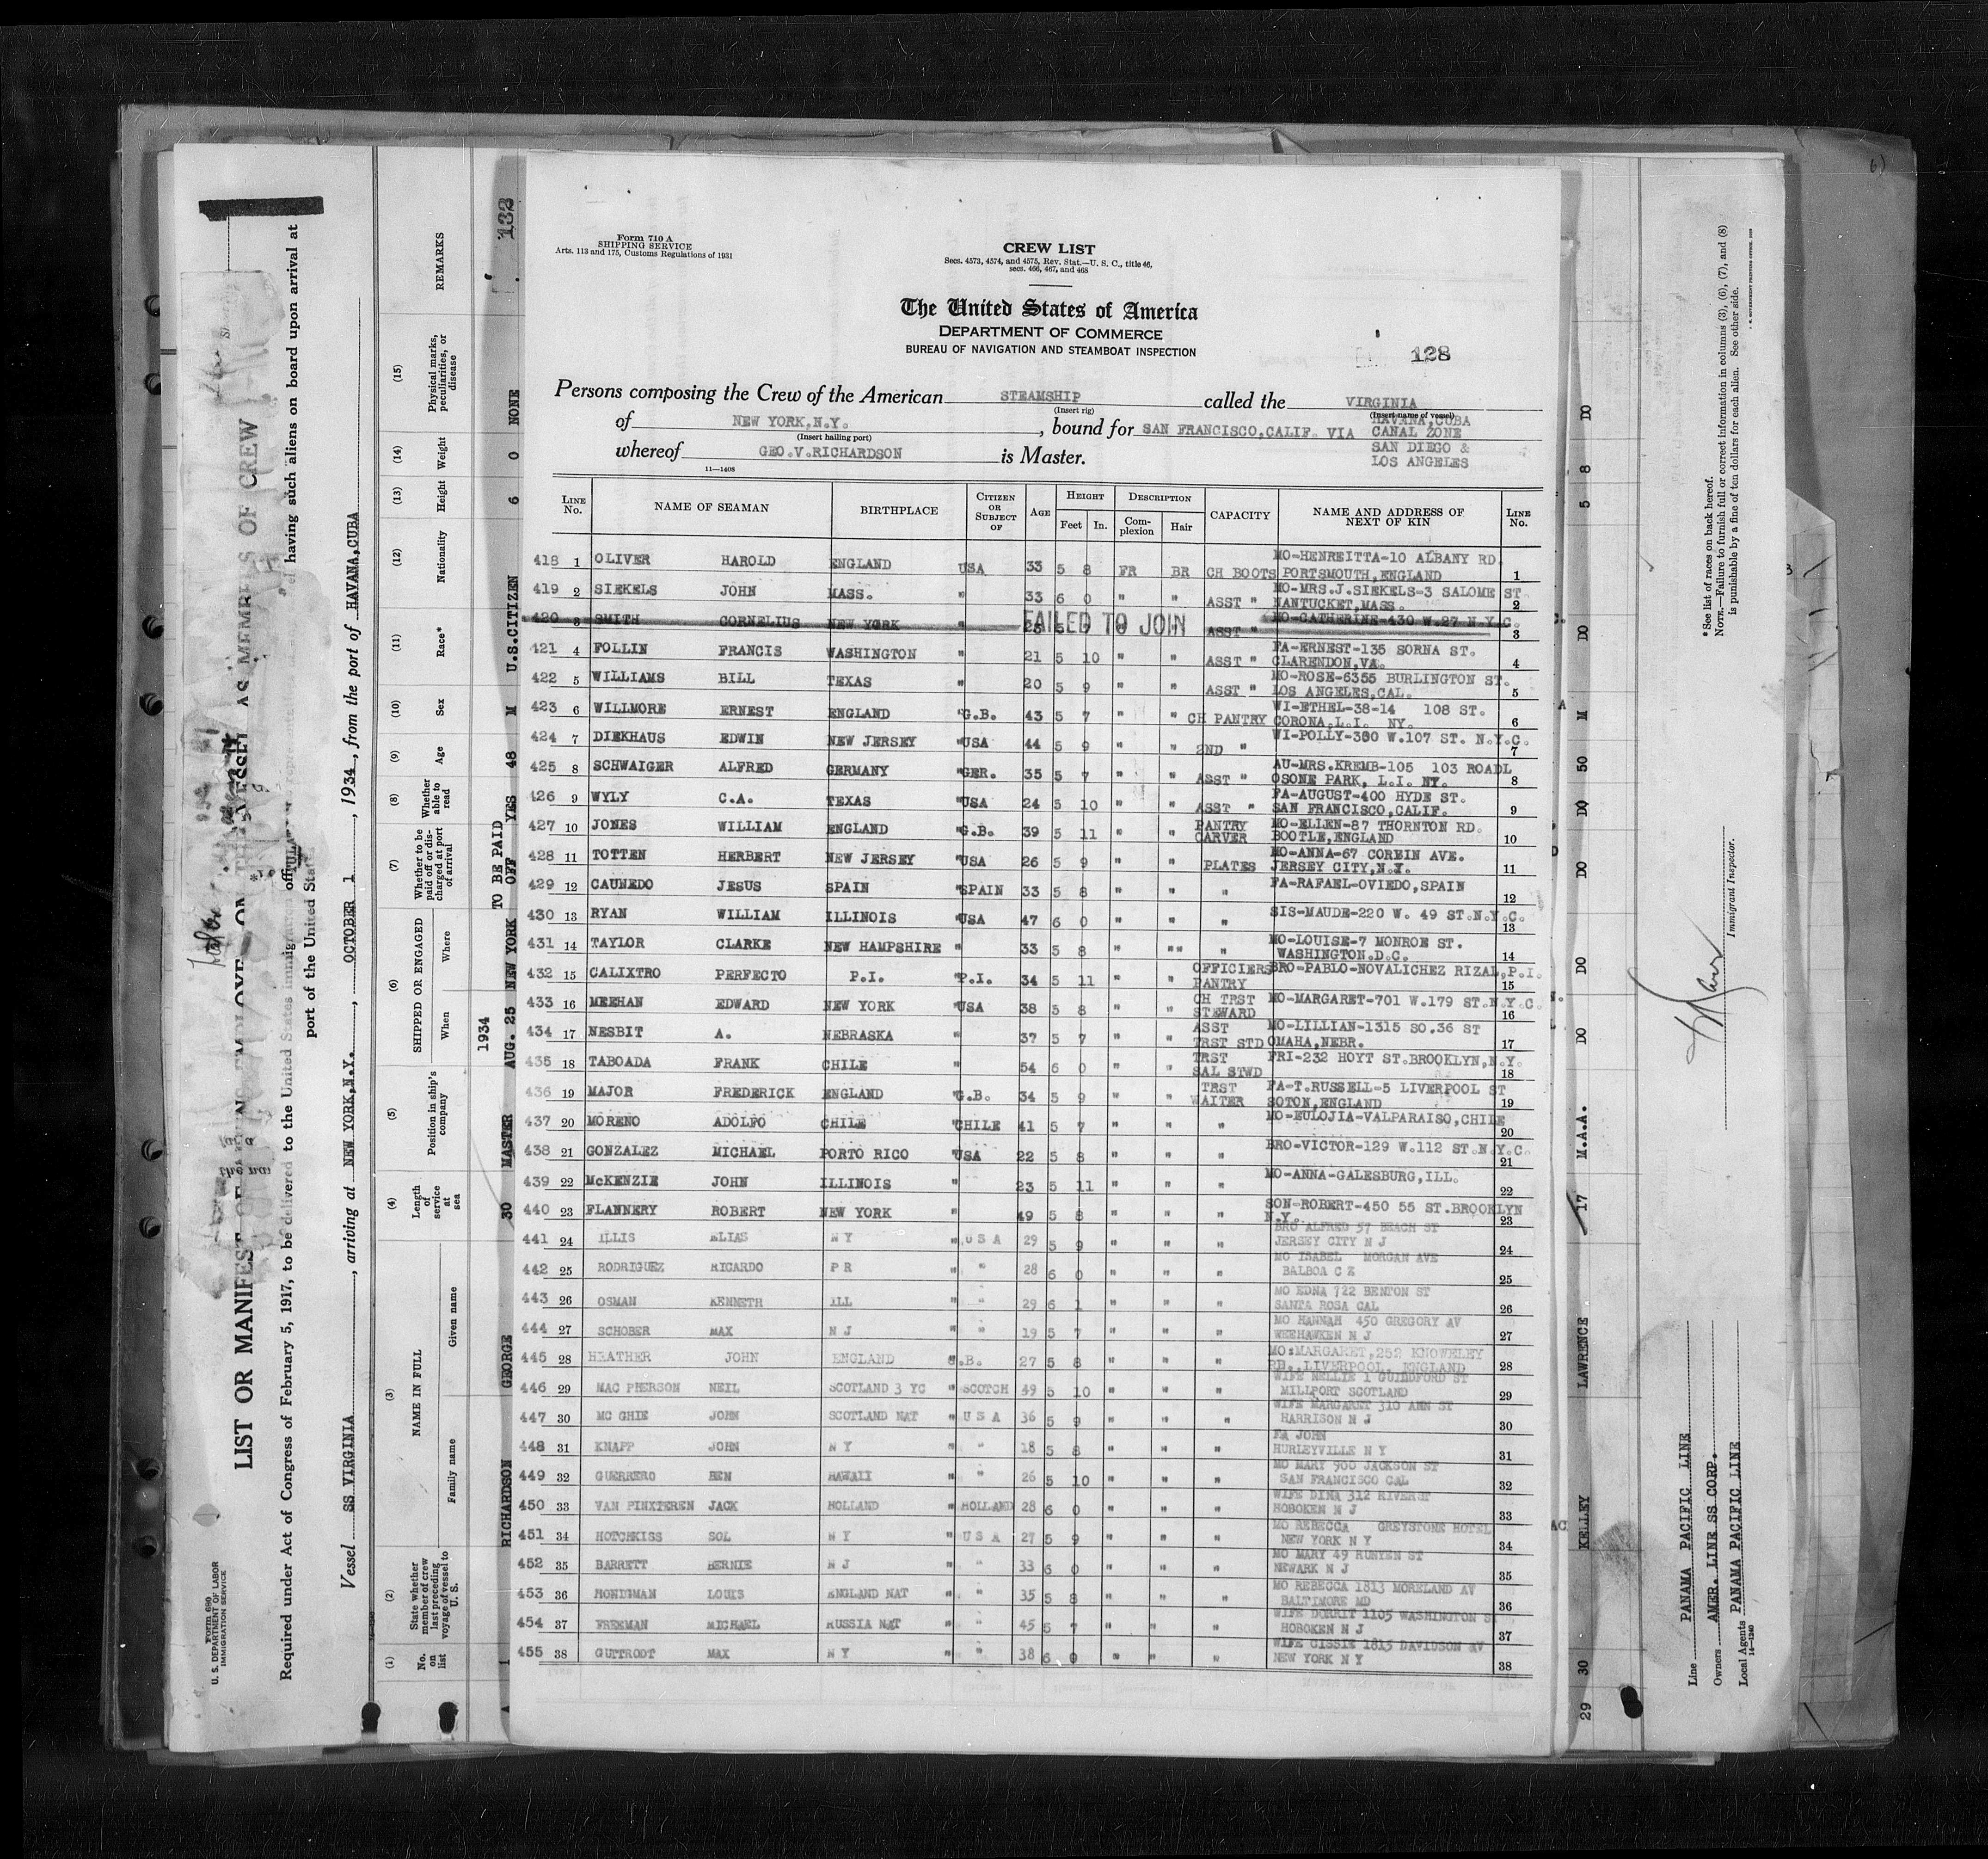 Form 710 A
SHIPPING SERVICE
Arts. 113 and 175, Customs Regulations of 1931
CREW LIST
Secs. 4573, 4574, and 4575, Rev. Stat.—U. S. C., title 46,
secs. 466, 467, and 468
The United States of America
DEPARTMENT OF COMMERCE
BUREAU OF NAVIGATION AND STEAMBOAT INSPECTION
128
Persons composing the Crew of the American STEAMSHIP called the VIRGINIA
(Insert rig) (Insert name of vessel)
of NEW YORK,N.Y., bound for SAN FRANCISCO,CALIF. VIA HAVANA,CUBA CANAL ZONE
(Insert hailing port)
whereof GEO.V.RICHARDSON is Master. SAN DIEGO & LOS ANGELES
11—1408
LINE No. NAME OF SEAMAN BIRTHPLACE CITIZEN OR SUBJECT OF AGE HEIGHT Feet In. DESCRIPTION Complexion Hair CAPACITY NAME AND ADDRESS OF NEXT OF KIN LINE No.
418 1 OLIVER HAROLD ENGLAND USA 33 5 8 FR BR CH BOOTS MO-HENREITTA-10 ALBANY RD. PORTSMOUTH,ENGLAND 1
419 2 SIEKELS JOHN MASS. " 33 6 0 " " ASST " MO-MRS.J.SIEKELS-3 SALOME ST. NANTUCKET,MASS. 2
420 3 SMITH CORNELIUS NEW YORK " FAILED TO JOIN ASST " MO-CATHERINE-430 W.27 N.Y.C. 3
421 4 FOLLIN FRANCIS WASHINGTON " 21 5 10 " " ASST " FA-ERNEST-135 SORNA ST. CLARENDON,VA. 4
422 5 WILLIAMS BILL TEXAS " 20 5 9 " " ASST " MO-ROSE-6355 BURLINGTON ST. LOS ANGELES,CAL. 5
423 6 WILLMORE ERNEST ENGLAND "G.B. 43 5 7 " " CH PANTRY WI-ETHEL-38-14 108 ST. CORONA,L.I. NY. 6
424 7 DIEKHAUS EDWIN NEW JERSEY "USA 44 5 9 " " 2ND " WI-POLLY-300 W.107 ST. N.Y.C. 7
425 8 SCHWAIGER ALFRED GERMANY "GER. 35 5 7 " " ASST " AU-MRS.KREMB-105 103 ROADL OSONE PARK, L.I. NY. 8
426 9 WYLY C.A. TEXAS "USA 24 5 10 " " ASST " FA-AUGUST-400 HYDE ST. SAN FRANCISCO,CALIF. 9
427 10 JONES WILLIAM ENGLAND "G.B. 39 5 11 " " PANTRY CARVER MO-ELLEN-87 THORNTON RD. BOOTLE,ENGLAND 10
428 11 TOTTEN HERBERT NEW JERSEY "USA 26 5 9 " " PLATES MO-ANNA-67 CORBIN AVE. JERSEY CITY,N.Y. 11
429 12 CAUNEDO JESUS SPAIN "SPAIN 33 5 8 " " " FA-RAFAEL-OVIEDO,SPAIN 12
430 13 RYAN WILLIAM ILLINOIS "USA 47 6 0 " " " SIS-MAUDE-220 W. 49 ST.N.Y.C. 13
431 14 TAYLOR CLARKE NEW HAMPSHIRE " 33 5 8 " "" " MO-LOUISE-7 MONROE ST. WASHINGTON.D.C. 14
432 15 CALIXTRO PERFECTO P.I. "P.I. 34 5 11 " " OFFICIERS PANTRY BRO-PABLO-NOVALICHEZ RIZAL,P.I. 15
433 16 MEEHAN EDWARD NEW YORK "USA 38 5 8 " " CH TRST STEWARD MO-MARGARET-701 W.179 ST.N.Y.C. 16
434 17 NESBIT A. NEBRASKA " 37 5 7 " " ASST TRST STD MO-LILLIAN-1315 SO.36 ST OMAHA,NEBR. 17
435 18 TABOADA FRANK CHILE " 54 6 0 " " TRST SAL STWD FRI-232 HOYT ST.BROOKLYN,N.Y. 18
436 19 MAJOR FREDERICK ENGLAND "G.B. 34 5 9 " " TRST WAITER FA-T.RUSSELL-5 LIVERPOOL ST SOTON,ENGLAND 19
437 20 MORENO ADOLFO CHILE "CHILE 41 5 7 " " " MO-EULOJIA-VALPARAISO,CHILE 20
438 21 GONZALEZ MICHAEL PORTO RICO "USA 22 5 8 " " " BRO-VICTOR-129 W.112 ST.N.Y.C. 21
439 22 McKENZIE JOHN ILLINOIS " 23 5 11 " " " MO-ANNA-GALESBURG,ILL. 22
440 23 FLANNERY ROBERT NEW YORK " 49 5 8 " " " SON-ROBERT-450 55 ST.BROOKLYN N.Y. 23
441 24 ILLIS ELIAS N Y " U S A 29 5 9 " " " BRO ALFRED 57 BEACH ST JERSEY CITY N J 24
442 25 RODRIGUEZ RICARDO P R " " 28 6 0 " " " MO ISABEL MORGAN AVE BALBOA C Z 25
443 26 OSMAN KENNETH ILL " " 29 6 1 " " " MO EDNA 722 BENTON ST SANTA ROSA CAL 26
444 27 SCHOBER MAX N J " " 19 5 7 " " " MO HANNAH 450 GREGORY AV WEEHAWKEN N J 27
445 28 HEATHER JOHN ENGLAND G.B. 27 5 8 " " " MO:MARGARET,252 KNOWELEY RD., LIVERPOOL, ENGLAND 28
446 29 MAC PHERSON NEIL SCOTLAND 3 YC " SCOTCH 49 5 10 " " " WIFE NELLIE 1 GUILDFORD ST MILLPORT SCOTLAND 29
447 30 MC GHIE JOHN SCOTLAND NAT " U S A 36 5 9 " " " WIFE MARGARET 310 ANN ST HARRISON N J 30
448 31 KNAPP JOHN N Y " " 18 5 8 " " " FA JOHN HURLEYVILLE N Y 31
449 32 GUERRERO BEN HAWAII " " 26 5 10 " " " MO MARY 900 JACKSON ST SAN FRANCISCO CAL 32
450 33 VAN PINXTEREN JACK HOLLAND " HOLLAND 28 6 0 " " " WIFE DINA 312 RIVERST HOBOKEN N J 33
451 34 HOTCHKISS SOL N Y " U S A 27 5 9 " " " MO REBECCA GREYSTONE HOTEL NEW YORK N Y 34
452 35 BARRETT BERNIE N J " " 33 6 0 " " " MO MARY 49 RUNYEN ST NEWARK N J 35
453 36 MONDIMAN LOUIS ENGLAND NAT " " 35 5 8 " " " MO REBECCA 1813 MORELAND AV BALTIMORE MD 36
454 37 FREEMAN MICHAEL RUSSIA NAT " " 45 5 7 " " " WIFE DORRIT 1105 WASHINGTON S HOBOKEN N J 37
455 38 GUTTRODT MAX N Y " " 38 6 0 " " " WIFE CISSIE 1815 DAVIDSON AV NEW YORK N Y 38
Form 680
U. S. DEPARTMENT OF LABOR
IMMIGRATION SERVICE
LIST OR MANIFEST OF
AS MEMBERS OF CREW
Required under Act of Congress of February 5, 1917, to be delivered to the United States immigration
having such aliens on board upon arrival at
port of the United States
Vessel SS VIRGINIA, arriving at NEW YORK,N.Y., OCTOBER 1, 1934, from the port of HAVANA,CUBA
(1) No. on list
(2) State whether member of crew last preceding voyage of vessel to U. S.
(3) NAME IN FULL Family name Given name
(4) Length of service at sea
(5) Position in ship's company
(6) SHIPPED OR ENGAGED When Where
(7) Whether to be paid off or discharged at port of arrival
(8) Whether able to read
(9) Age
(10) Sex
(11) Race*
(12) Nationality
(13) Height
(14) Weight
(15) Physical marks, peculiarities, or disease
REMARKS
1934 TO BE PAID
RICHARDSON GEORGE 30 MASTER AUG. 25 NEW YORK OFF YES 48 M U.S.CITIZEN 6 0 NONE 132
29 30 KELLEY LAWRENCE 17 M.A.A. DO DO DO DO 50 M DO 5 8 DO
Line PANAMA PACIFIC LINE
Owners AMER. LINE SS CORP.
Local Agents PANAMA PACIFIC LINE
14—1240
Immigrant Inspector.
*See list of races on back hereof.
NOTE.—Failure to furnish full or correct information in columns (3), (6), (7), and (8)
is punishable by a fine of ten dollars for each alien. See other side.